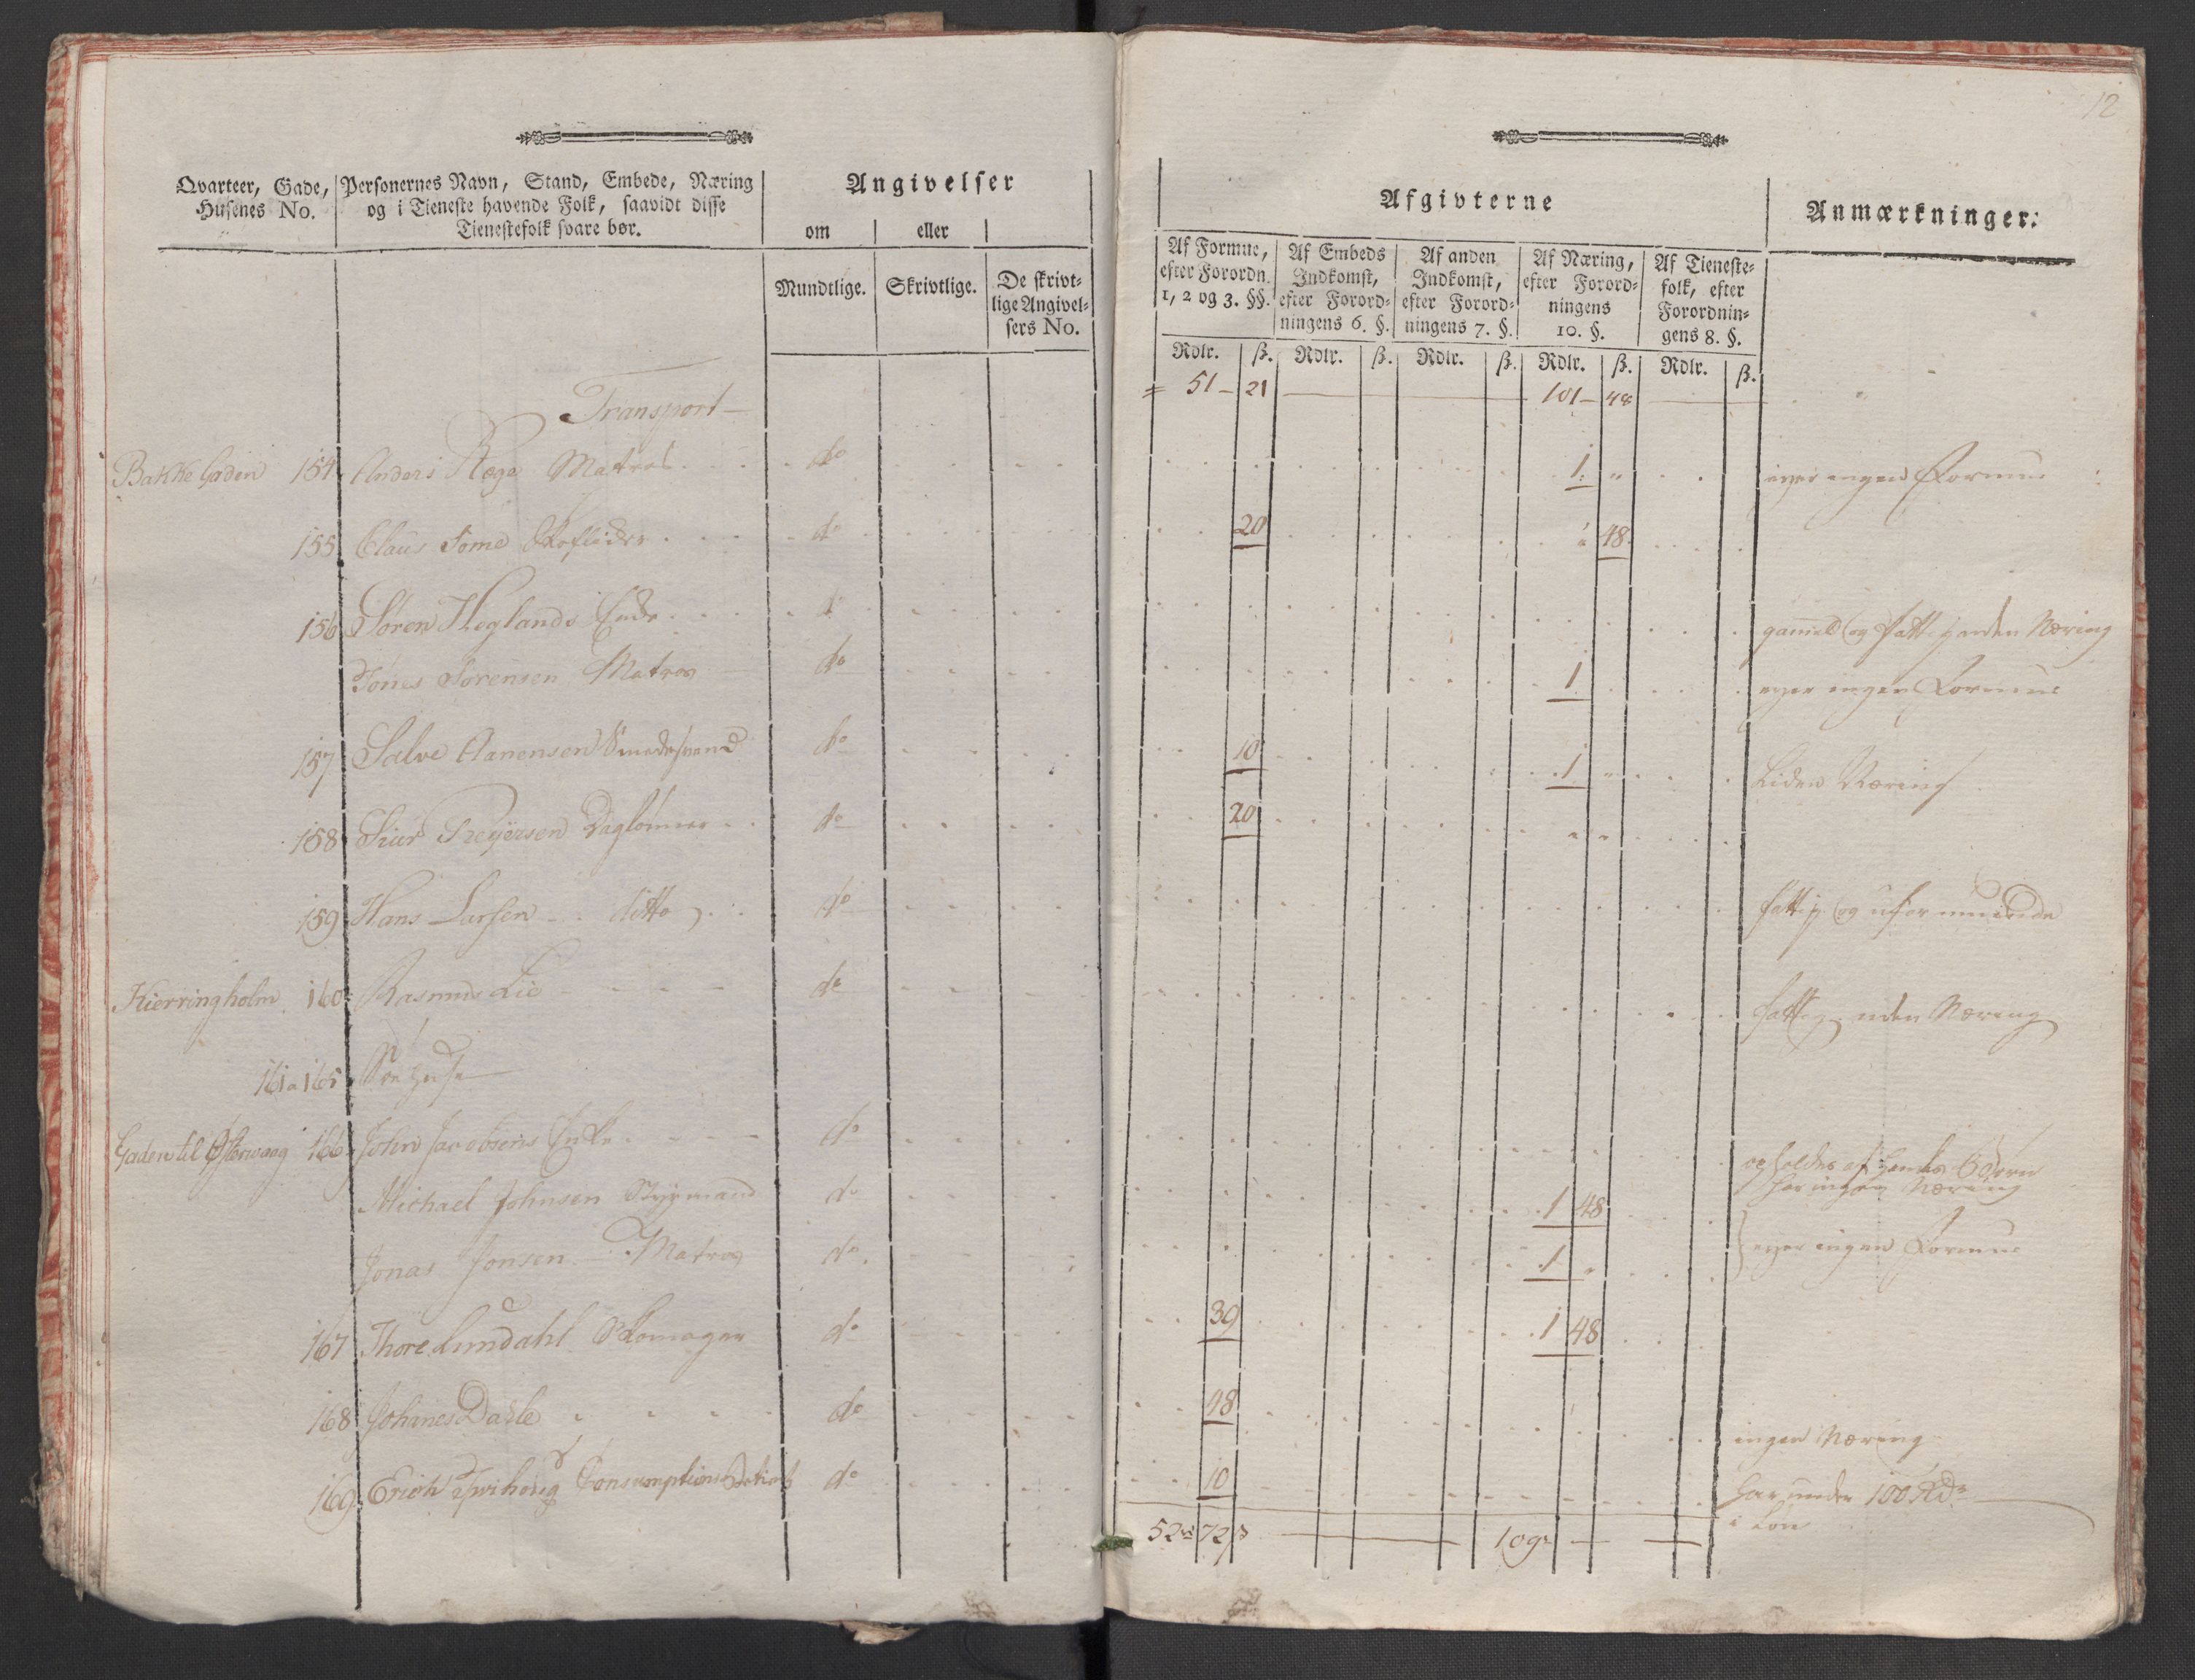 12
Qvarteer, Gade, Husenes No.
Personernes Navn, Stand, Embede, Næring og i Tieneste havende Folk, saavidt disse Tienestefolk svare bør.
Angivelser
om eller
Mundtlige. Skrivtlige. De skrivtlige Angivelsers No.
Afgivterne
Anmærkninger:
Af Formue, efter Forordn. 1, 2 og 3. §§.
Af Embeds Indkomst, efter Forordningens 6. §.
Af anden Indkomst, efter Forordningens 7. §.
Af Næring, efter Forordningens 10. §.
Af Tienestefolk, efter Forordningens 8. §.
Rdlr. ß. Rdlr. ß. Rdlr. ß. Rdlr. ß. Rdlr. ß.
Transport 51 21 101 48
Bakke Gaden 154 Anders Møge Matros do 1 " eyer ingen Formue
155 Claus Some do 20 " 48
156 Søren Heglands Enke do gammel og fattig uden Næring
Jones Sørensen Matros do 1 eyer ingen Formue
157 Salve Aanensen do 10 1 " Liden Næring
158 Siur Daglønner do 20 " "
159 Hans Larsen ditto do fattig og uformuende
Kierringholm 160 Rasmus Lie do fattig uden Næring
161 a 165 Søe Huse
Gaden til Østervaag 166 John Jacobsens Enke do holdes af hendes Børn
har ingen Næring
Michael Johnsen Styrmand do 1 48
Jonas Jonsen Matros do 1 " eyer ingen Formue
167 Thore Lundahl Skomager do 39 1 48
168 Johanes Dahle do 48 ingen Næring
169 Erich Consumptions do 10 har under 100 Rdr
i Løn
52 72 109